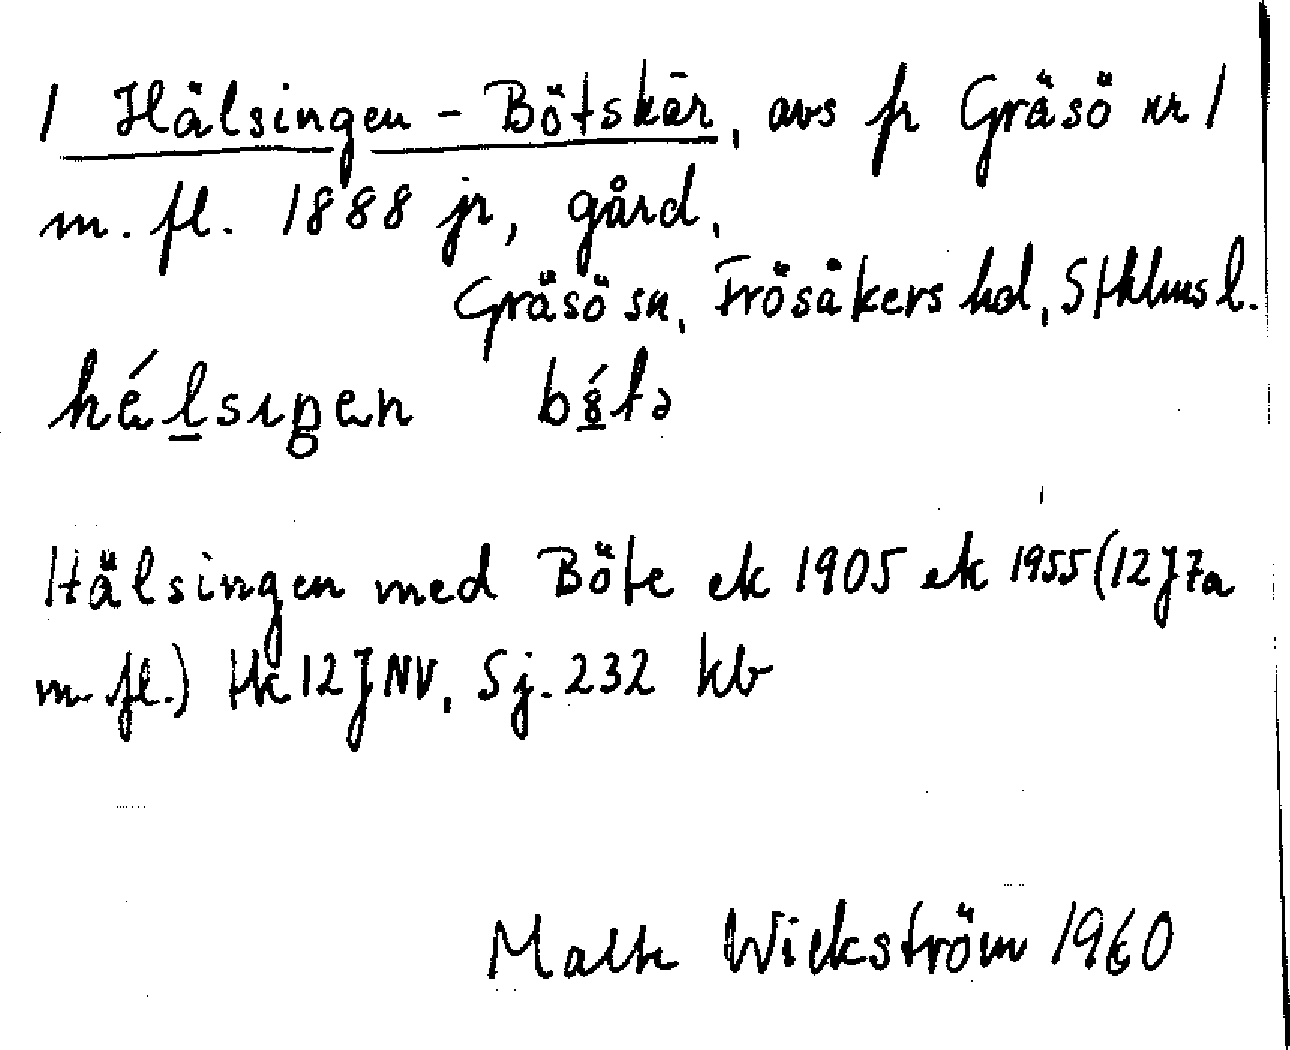 1 Hälsingen - Bötskär, avs fr Gräsö nr 1
m. fl. 1888 jr, gård,
Gräsö sn, Frösåkers hd, Sthlms l.
Hälsingen med Böte ek 1905 ek 1955 (12J7a
m. fl.) tk 12J NV, Sj. 232 kb
Malte Wickström 1960